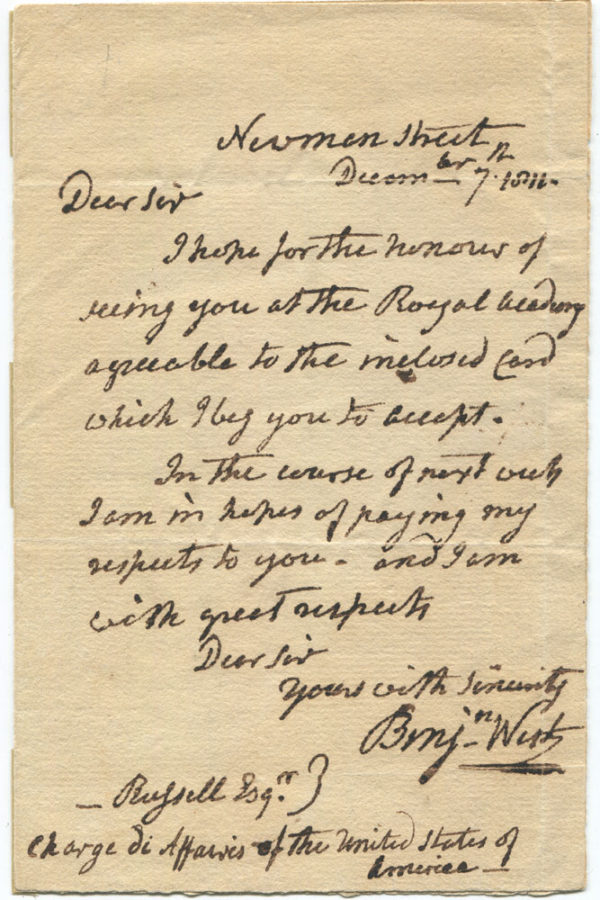 Newman Street
Decem—ber 7.th 1811.
Dear Sir
I hope for the honour of
seeing you at the Royal Academy
agreeable to the inclosed Card
which I beg you to accept.
In the course of next week
I am in hopes of paying my
respects to you - and I am
with great respects
Dear Sir
yours with Sincerity
Benj-n. West
— Russell Esqr. }
Charge di Affairis of the United States of
America —